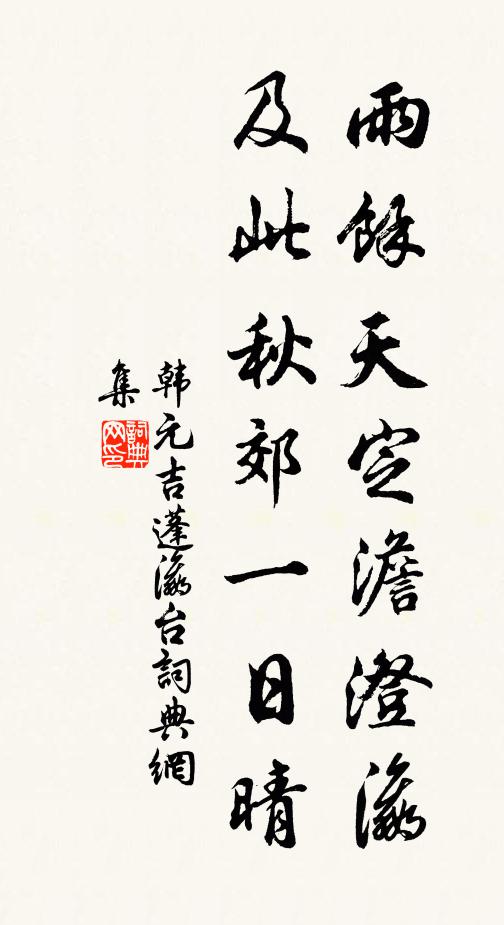 雨餘天定澹澄瀛
及此秋郊一日晴
韩元吉蓬瀛台詞典網
集
詞典
网印